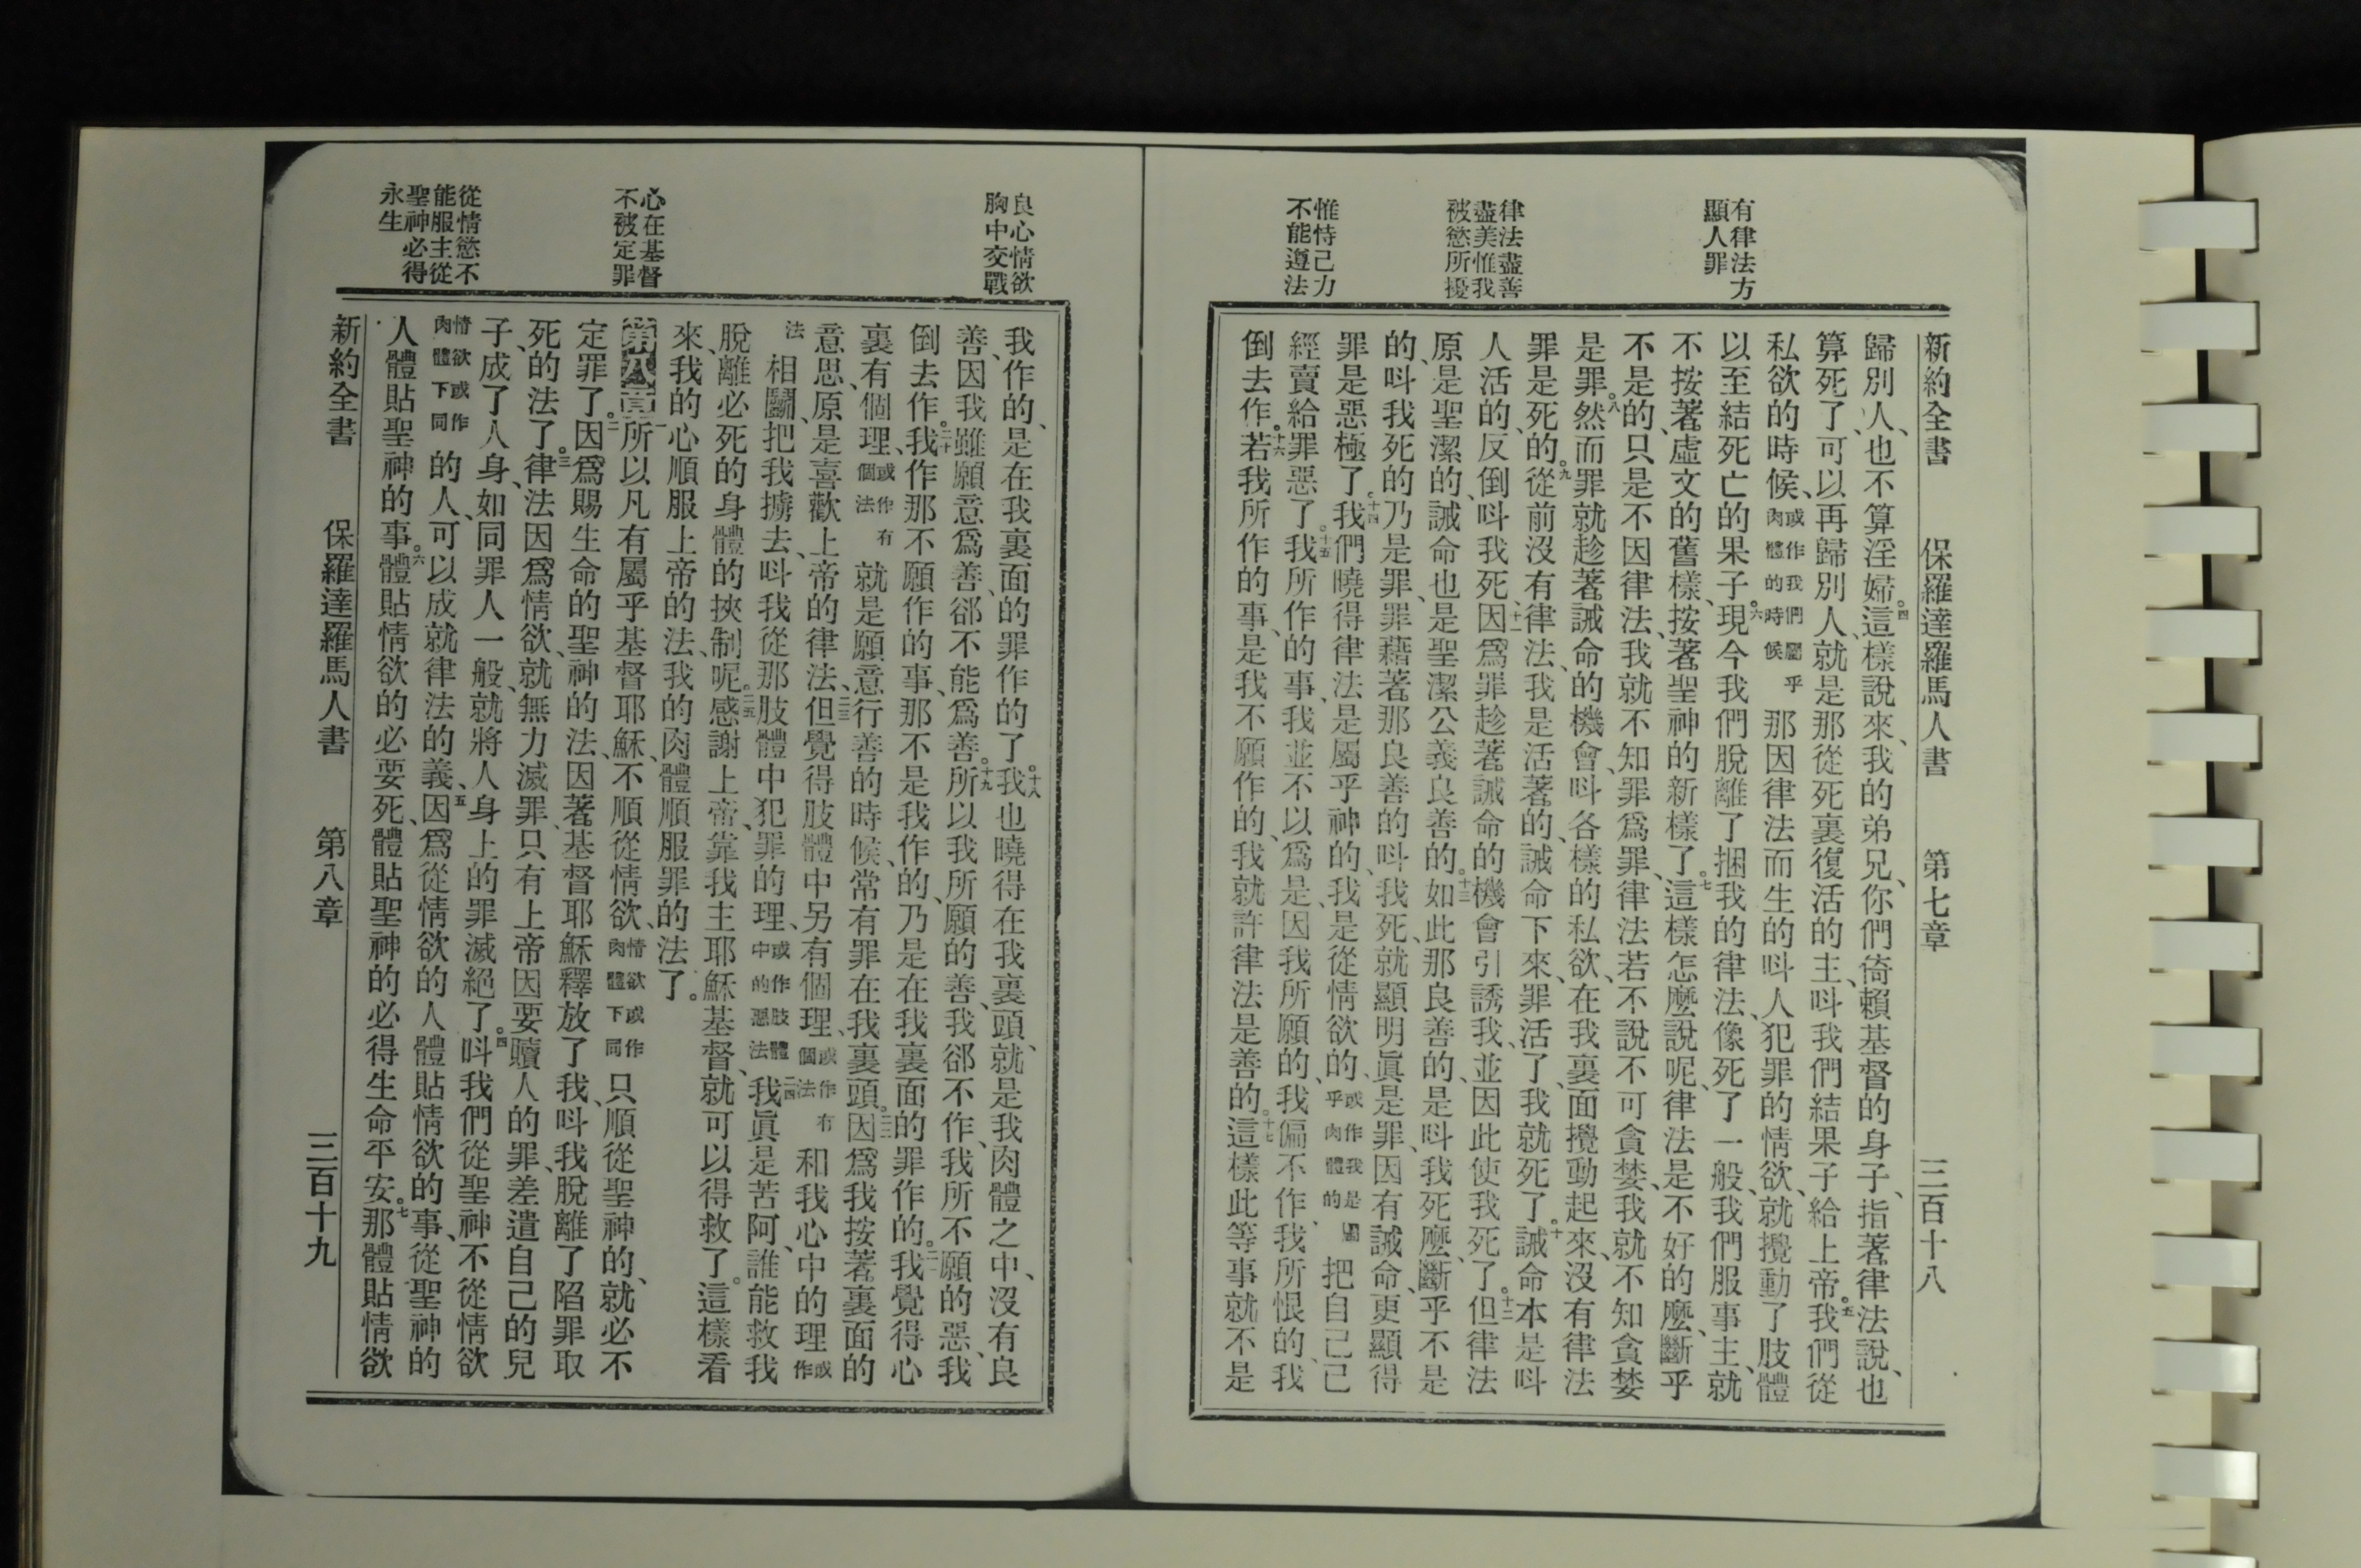 有律法方
顯人罪
律法盡善
盡美惟我
被慾所擾
惟恃己力
不能遵法
新約全書 保羅達羅馬人書 第七章 三百十八
歸別人、也不算淫婦。四這樣說來、我的弟兄、你們倚賴基督的身子、指著律法說、也
算死了、可以再歸別人、就是那從死裏復活的主、呌我們結果子給上帝。五我們從
私欲的時候、或作我們屬乎肉體的時候那因律法而生的呌人犯罪的情欲、就攪動了肢體
以至結死亡的果子。六現今我們脫離了捆我的律法、像死了一般、我們服事主、就
不按著虛文的舊樣、按著聖神的新樣了。七這樣怎麽說呢、律法是不好的麽、斷乎
不是的、只是不因律法、我就不知罪爲罪、律法若不說不可貪婪、我就不知貪婪
是罪。八然而罪就趁著誡命的機會、呌各樣的私欲、在我裏面攪動起來、沒有律法
罪是死的。九從前沒有律法、我是活著的、誡命下來、罪活了、我就死了。十誡命本是呌
人活的、反倒呌我死、十一因爲罪趁著誡命的機會引誘我、並因此使我死了。十二但律法
原是聖潔的、誡命也是聖潔公義良善的。十三如此那良善的、是呌我死麽、斷乎不是
的、呌我死的乃是罪、罪藉著那良善的呌我死、就顯明眞是罪、因有誡命、更顯得
罪是惡極了。十四我們曉得律法、是屬乎神的、我是從情欲的、或作我是屬乎肉體的把自己已
經賣給罪惡了。十五我所作的事、我並不以爲是、因我所願的、我偏不作、我所恨的、我
倒去作。十六若我所作的事、是我不願作的、我就許律法是善的。十七這樣此等事就不是
良心情欲
胸中交戰
心在基督
不被定罪
從情慾不
能服主從
聖神必得
永生
我作的、是在我裏面的罪作的了。十八我也曉得在我裏頭、就是我肉體之中、沒有良
善、因我雖願意爲善、卻不能爲善。十九所以我所願的善、我卻不作、我所不願的惡、我
倒去作。二十我作那不願作的事、那不是我作的、乃是在我裏面的罪作的。二一我覺得心
裏有個理、或作有個法就是願意行善的時候、常有罪在我裏頭。二二因爲我按著裏面的
意思、原是喜歡上帝的律法、二三但覺得肢體中另有個理、或作有個法和我心中的理或作
法相鬭、把我擄去、呌我從那肢體中犯罪的理、或作肢體中的惡法二四我眞是苦阿、誰能救我
脫離必死的身體的挾制呢。二五感謝上帝、靠我主耶穌基督、就可以得救了。這樣看
來、我的心順服上帝的法、我的肉體順服罪的法了。
第八章一所以凡有屬乎基督耶穌、不順從情欲、情欲或作肉體下同只順從聖神的、就必不
定罪了。二因爲賜生命的聖神的法、因著基督耶穌釋放了我、呌我脫離了陷罪取
死的法了。三律法因爲情欲、就無力滅罪、只有上帝因要贖人的罪、差遣自己的兒
子、成了人身、如同罪人一般、就將人身上的罪滅絕了。四呌我們從聖神不從情欲
情欲或作肉體下同的人、可以成就律法的義、五因爲從情欲的人體貼情欲的事、從聖神的
人體貼聖神的事。六體貼情欲的必要死、體貼聖神的必得生命平安。七那體貼情欲
新約全書 保羅達羅馬人書 第八章 三百十九